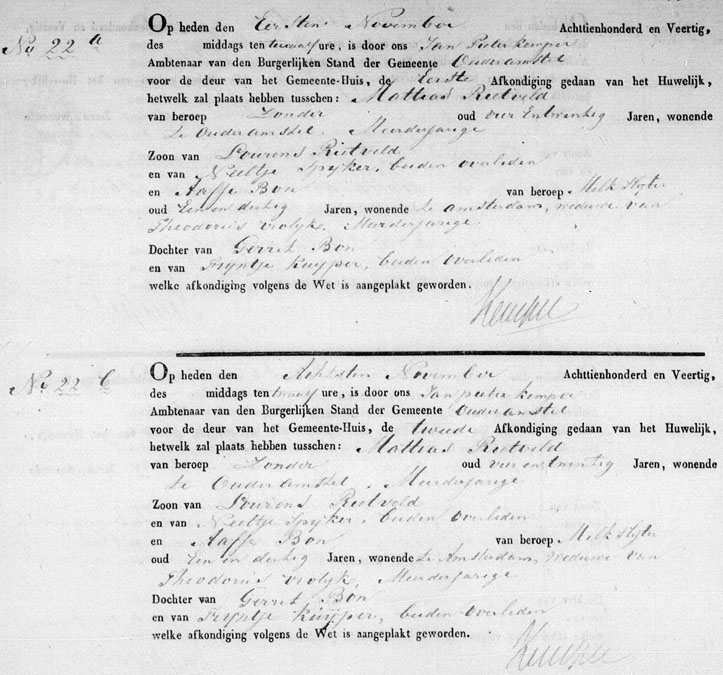 No 22 a
Op heden den Eersten November Achttienhonderd en Veertig,
des middags ten twaalf ure, is door ons Jan Pieter Kemper
Ambtenaar van den Burgerlijken Stand der Gemeente Ouderamstel
voor de deur van het Gemeente-Huis, de Eerste Afkondiging gedaan van het Huwelijk,
hetwelk zal plaats hebben tusschen: Mathias Rietveld
van beroep Zonder oud vier Entwintig Jaren, wonende
te Ouderamstel, Meerderjarige
Zoon van Lourens Rietveld
en van Neeltje Spyker, beiden overleden
en Aaffe Bon van beroep Melk Slyter
oud Een en dertig Jaren, wonende te Amsterdam, weduwe van
Theodorus vrolyk, Meerderjarige
Dochter van Gerrit Bon
en van Tryntje Kuyper, beiden overleden
welke afkondiging volgens de Wet is aangeplakt geworden.
Kemper
No 22 b
Op heden den Achtsten November Achttienhonderd en Veertig,
des middags ten twaalf ure, is door ons Jan pieter Kemper
Ambtenaar van den Burgerlijken Stand der Gemeente Ouderamstel
voor de deur van het Gemeente-Huis, de tweede Afkondiging gedaan van het Huwelijk,
hetwelk zal plaats hebben tusschen: Mathias Rietveld
van beroep Zonder oud vier en twintig Jaren, wonende
te Ouderamstel, Meerderjarige
Zoon van Lourens Rietveld
en van Neeltje Spyker, beiden overleden
en Aaffe Bon van beroep Melk Slyter
oud Een en dertig Jaren, wonende te Amsterdam, weduwe van
Theodorus vrolyk, Meerderjarige
Dochter van Gerrit Bon
en van Tryntje Kuyper, beiden overleden
welke afkondiging volgens de Wet is aangeplakt geworden.
Kemper